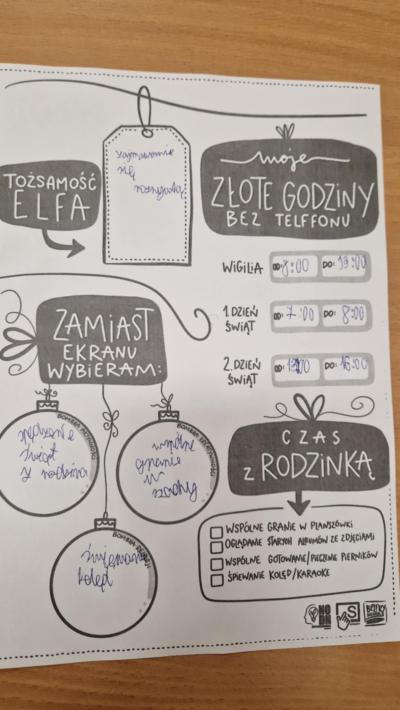 TOŻSAMOŚĆ
ELFA
zajmowanie
się
moje
ZŁOTE GODZINY
BEZ TELEFONU
WIGILIA OD: 8:00 DO: 19:00
1.DZIEŃ
ŚWIĄT
OD: 7:00 DO: 8:00
2.DZIEŃ
ŚWIĄT
DO: 16:00
ZAMIAST
EKRANU
WYBIERAM:
spędzenie
świąt
z rodziną
wspólne
granie
w
szachy
śpiewanie
kolęd
CZAS
z RODZINKĄ
WSPÓLNE GRANIE W PLANSZÓWKI
OGLĄDANIE STARYCH ALBUMÓW ZE ZDJĘCIAMI
WSPÓLNE GOTOWANIE/PIECZENIE PIERNIKÓW
ŚPIEWANIE KOLĘD/KARAOKE